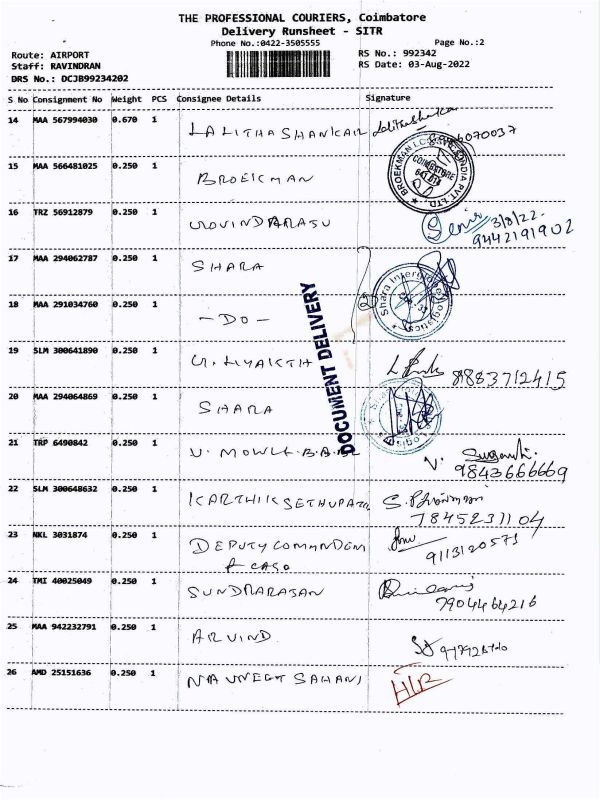 THE PROFESSIONAL COURIERS, Coimbatore
Delivery Runsheet - SITR
Phone No.:0422-3505555 Page No.:2
Route: AIRPORT RS No.: 992342
Staff: RAVINDRAN RS Date: 03-Aug-2022
DRS No.: DCJB99234202
S No Consignment No Weight PCS Consignee Details Signature
14 MAA 567994030 0.670 1 LALITHA SHANKAR
15 MAA 566481025 0.250 1 BROEKMAN
BROEKMAN INDIA PVT LTD. COIMBATORE
16 TRZ 56912879 0.250 1 GOVINDARASU 3/8/22.
9442191902
17 MAA 294062787 0.250 1 SHARA
Shara Logistics
18 MAA 291034760 0.250 1 -DO-
DOCUMENT DELIVERY
19 SLM 300641890 0.250 1 8883712415
20 MAA 294064869 0.250 1 SHARA
21 TRP 6490842 0.250 1 V.
9843666669
22 SLM 300648632 0.250 1 KARTHIK SETHUPATHI
7845231104
23 NKL 3031874 0.250 1 DEPUTY COMMANDEM
CASO 9113120571
24 TMI 40025049 0.250 1 SUNDRARAJAN
7904464216
25 MAA 942232791 0.250 1 ARVIND
26 AMD 25151636 0.250 1 NAVNEET SAHANI